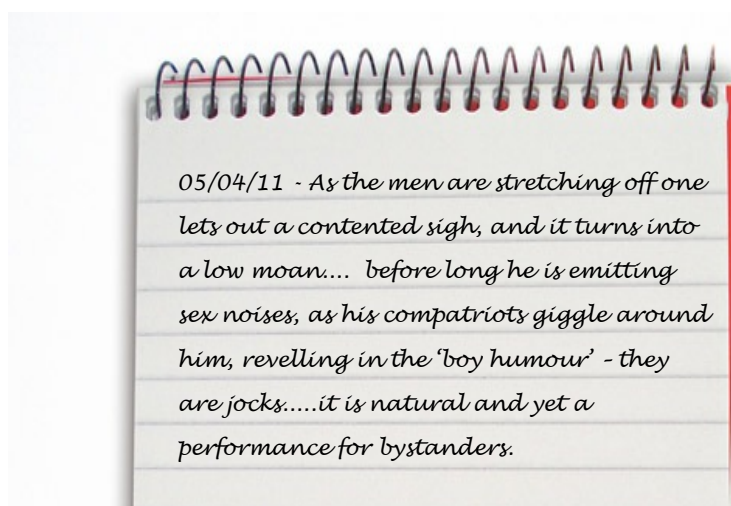 05/04/11 - As the men are stretching off one
lets out a contented sigh, and it turns into
a low moan.... before long he is emitting
sex noises, as his compatriots giggle around
him, revelling in the ‘boy humour’ – they
are jocks.....it is natural and yet a
performance for bystanders.